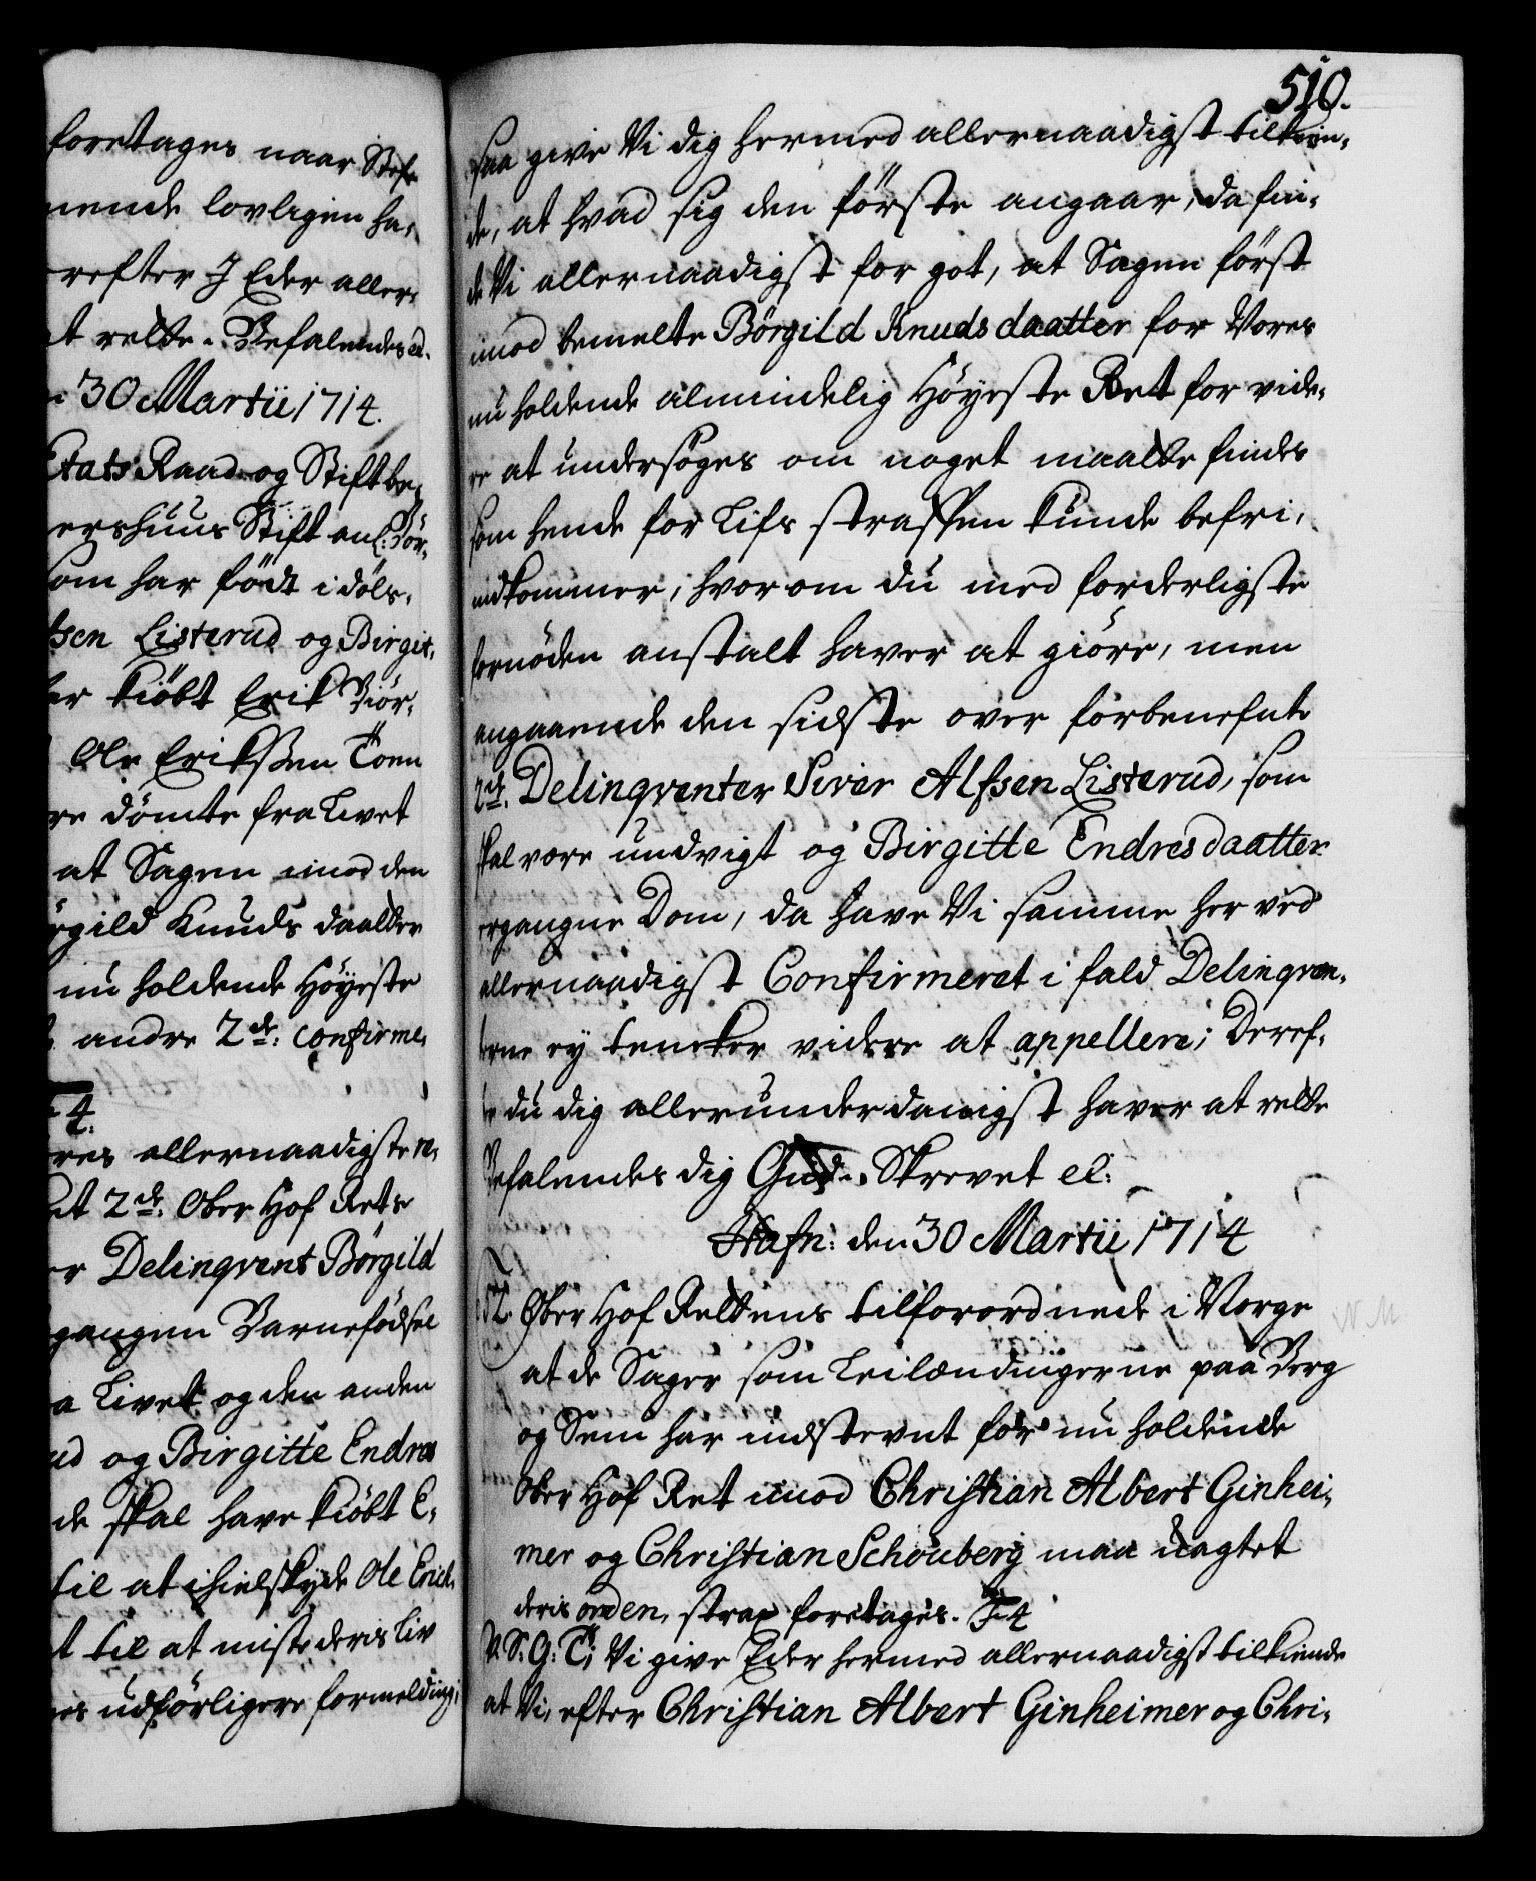 foretages naar Stef
nende lovligen ha,
refter I Eder aller,
t rette. Befalendes ed.
30 Martii 1714.
Etats Raad og Stiftbe,
ershuus Stift anl: Bör,
som har födt i döls,
sen Listerud og Birgit,
er kiöbt Erik Biör,
Ole Erikssen Toen
re dömte fra Livet
at Sagen imod den
rgild Knuds daatter
nu holdende Höyeste
andre 2de: confirme,
4.
res allernaadigste re,
t 2de: Ober Hof Rets
r Delinqvent Börgild
gangen Barnefödsel
a Livet og den anden
ud og Birgitte Endres
de skal have kiöbt E,
til at ihielskyde Ole Erich,
t til at miste deris Liv
es udförligere formelding,
510.
saa give Vi dig hermed allernaadigst tilkien,
de, at hvad sig den förste angaar, da fin,
de Vi allernaadigst for got, at Sagen först
imod bemelte Börgild Knuds daatter for Vores
nu holdende almindelig Höyeste Ret for vide,
re at undersöges om noget maatte findes
som hende for Lifs straffen kunde befri,
indkommer, hvorom du med forderligste
fornöden anstalt haver at giöre, men
angaaende den sidste over forbenefnte
2de. Delinqventer Siver Alfsen Listerud, som
skal være undvigt og Birgitte Endresdaatter
ergangne Dom, da have Vi samme her ved
allernaadigst Confirmeret i fald Delinqven,
terne ey tencker videre at appellere; Deref,
te du dig allerunderdanigst haver at rette
Befalendes dig Gud. Skrevet el:
Hafn: den 30 Martii 1714
52. Ober Hof Rettens tilforordnede i Norge
at de Sager som Leilændingerne paa Borg
og Sem har indstevnt for nu holdende
Ober Hof Ret imod Christian Albert Ginhei,
mer og Christian Schouberg maa uagtet
deris orden, strax foretages. F 4
V. S. G: T; Vi give Eder hermed allernaadigst tilkiende
at Vi, efter Christian Albert Ginheimer og Chri,